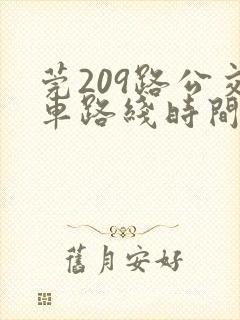 莞209路公交
車路綫時間
舊月安好